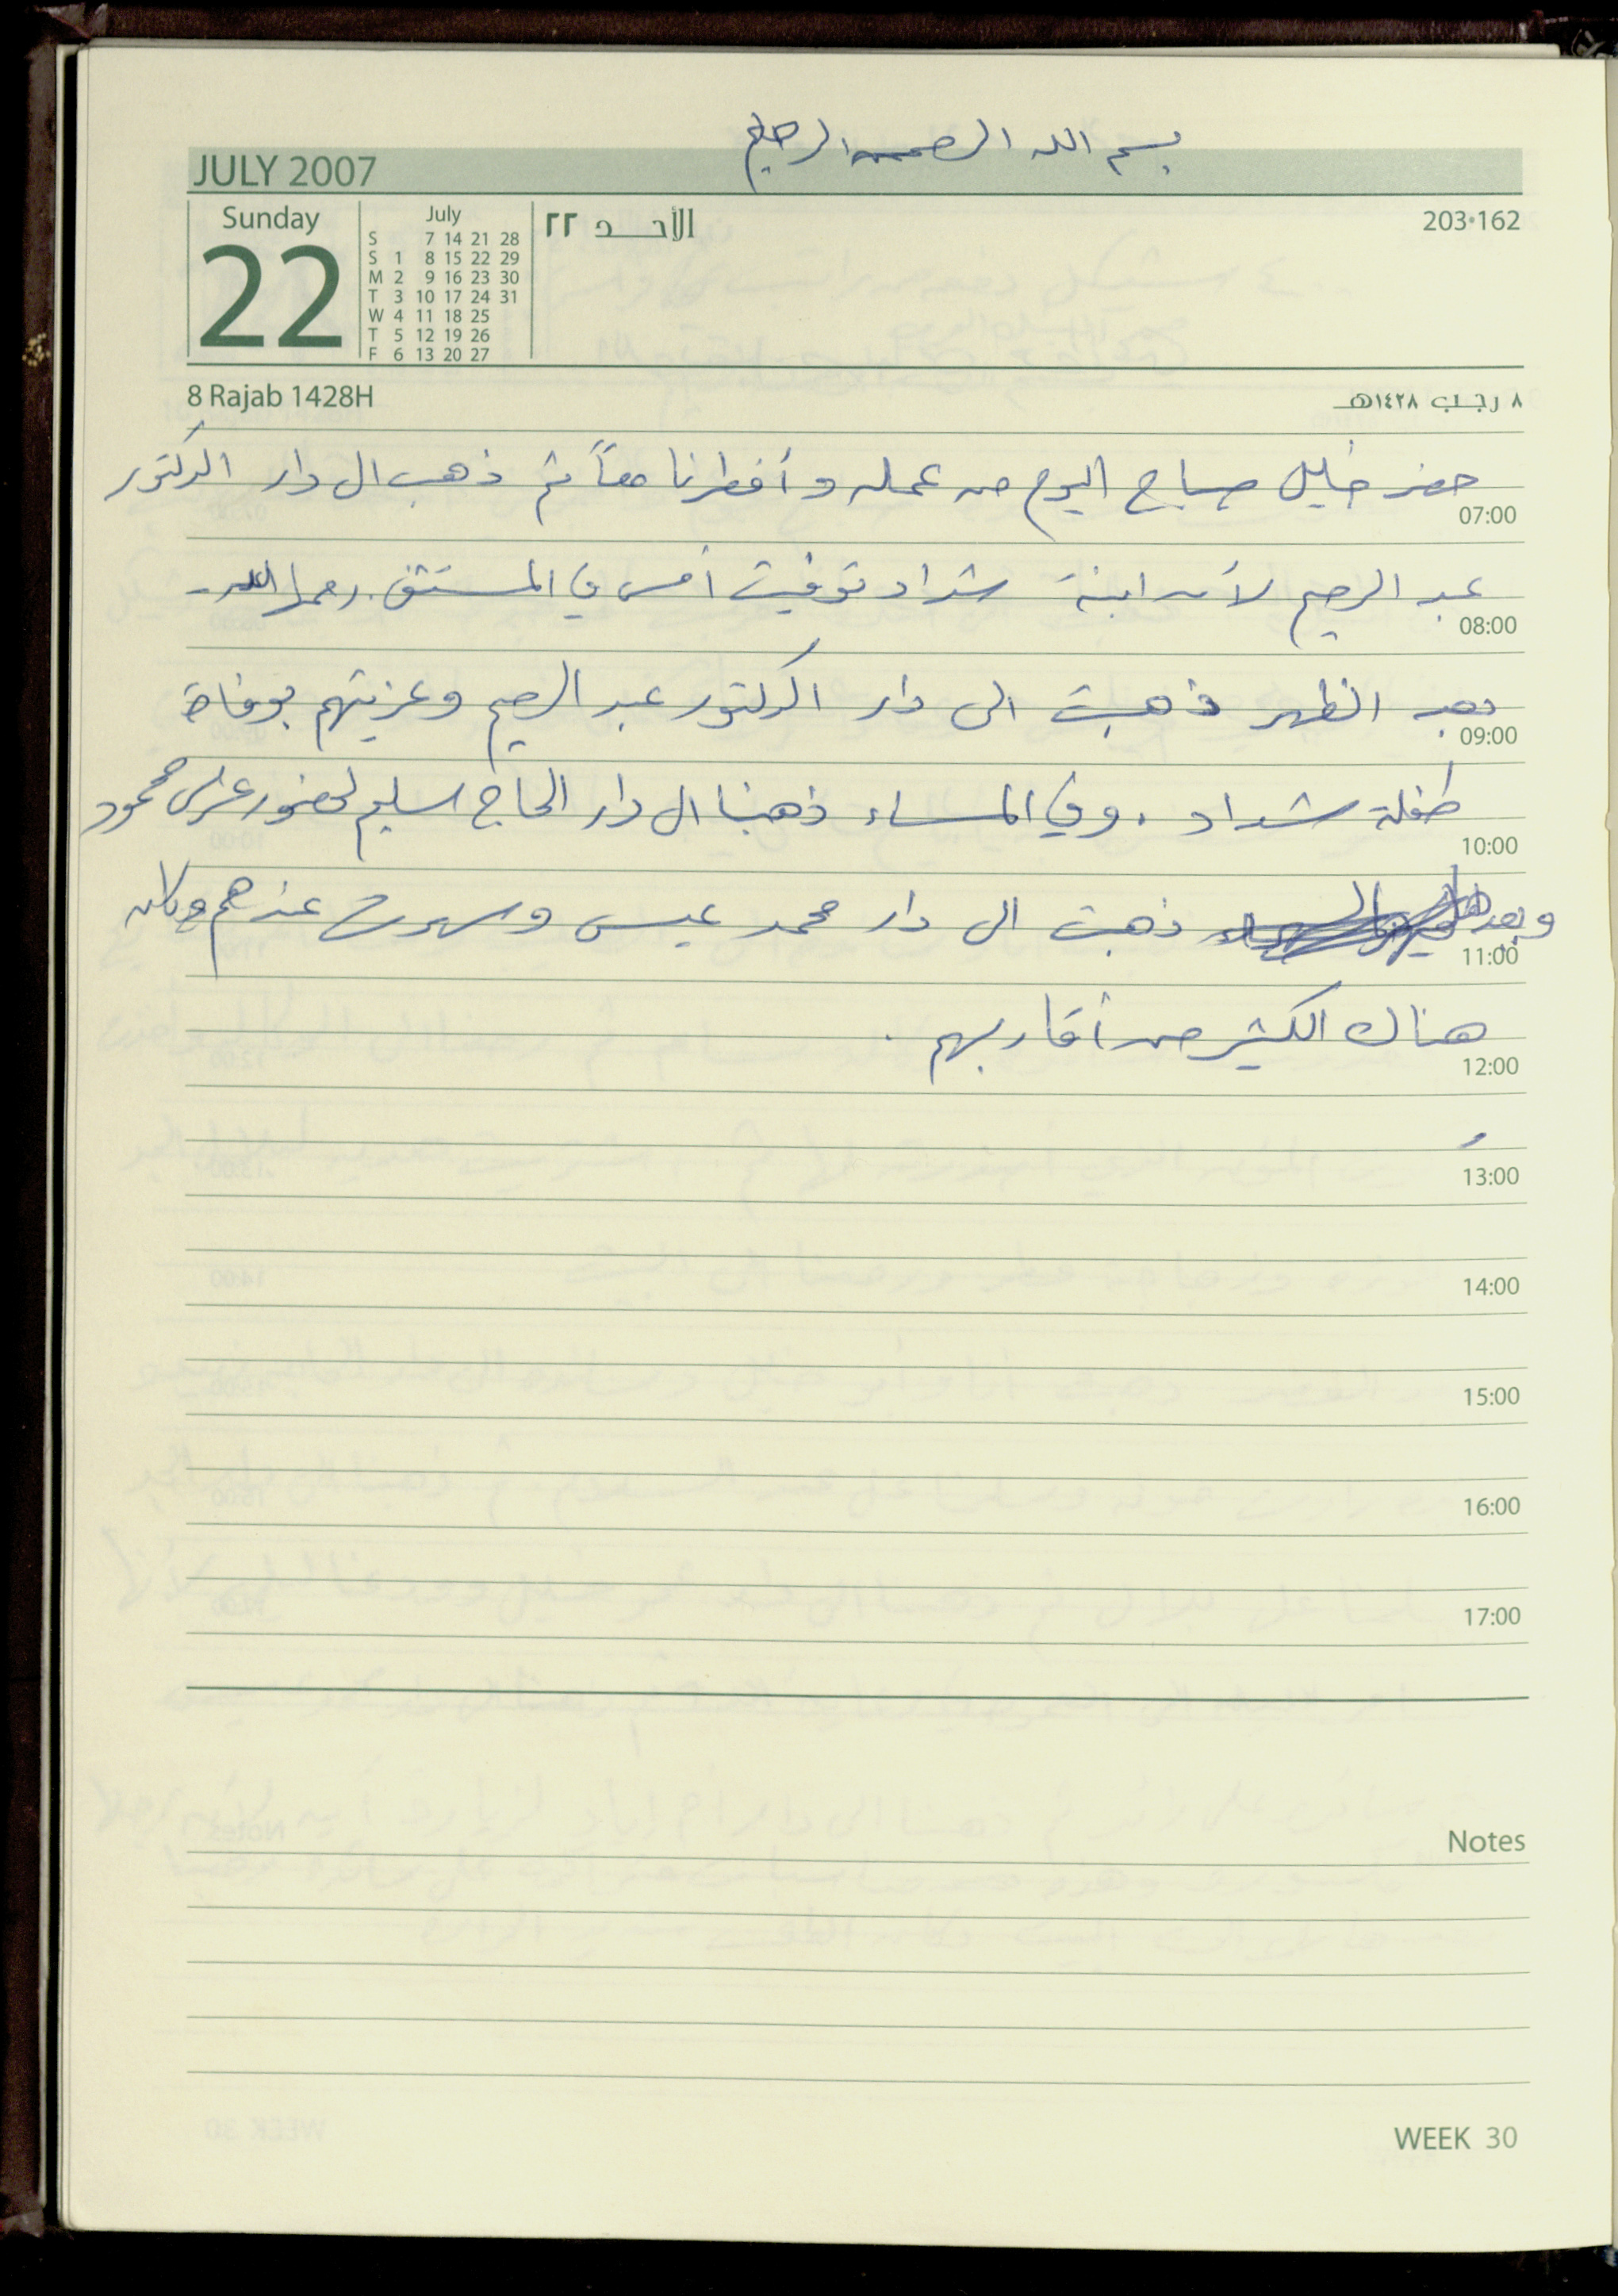 بسم الله الرحمن الرحيم
JULY 2007
Sunday
22
July
S 7 14 21 28
S 1 8 15 22 29
M 2 9 16 23 30
T 3 10 17 24 31
W 4 11 18 25
T 5 12 19 26
F 6 13 20 27
الأحد ٢٢
203•162
8 Rajab 1428H
٨ رجب ١٤٢٨هـ
حضر خليل صباح اليوم من عمله وأفطرنا معاً ثم ذهب الى دار الدكتور
07:00
عبد الرحيم لأن ابنة شداد توفيت أمس في المستشفى. رحمها الله.
08:00
بعد الظهر ذهبت الى دار الدكتور عبد الرحيم وعزيتهم بوفاة
09:00
طفلة شداد. وفي المساء ذهبنا الى دار الحاج اسليم لحضور عرس محمود
10:00
وبعدها ذهبت الى دار محمد عيسى وسهرت عندهم وكان
11:00
هناك الكثير من أقاربهم.
12:00
13:00
14:00
15:00
16:00
17:00
Notes
WEEK 30